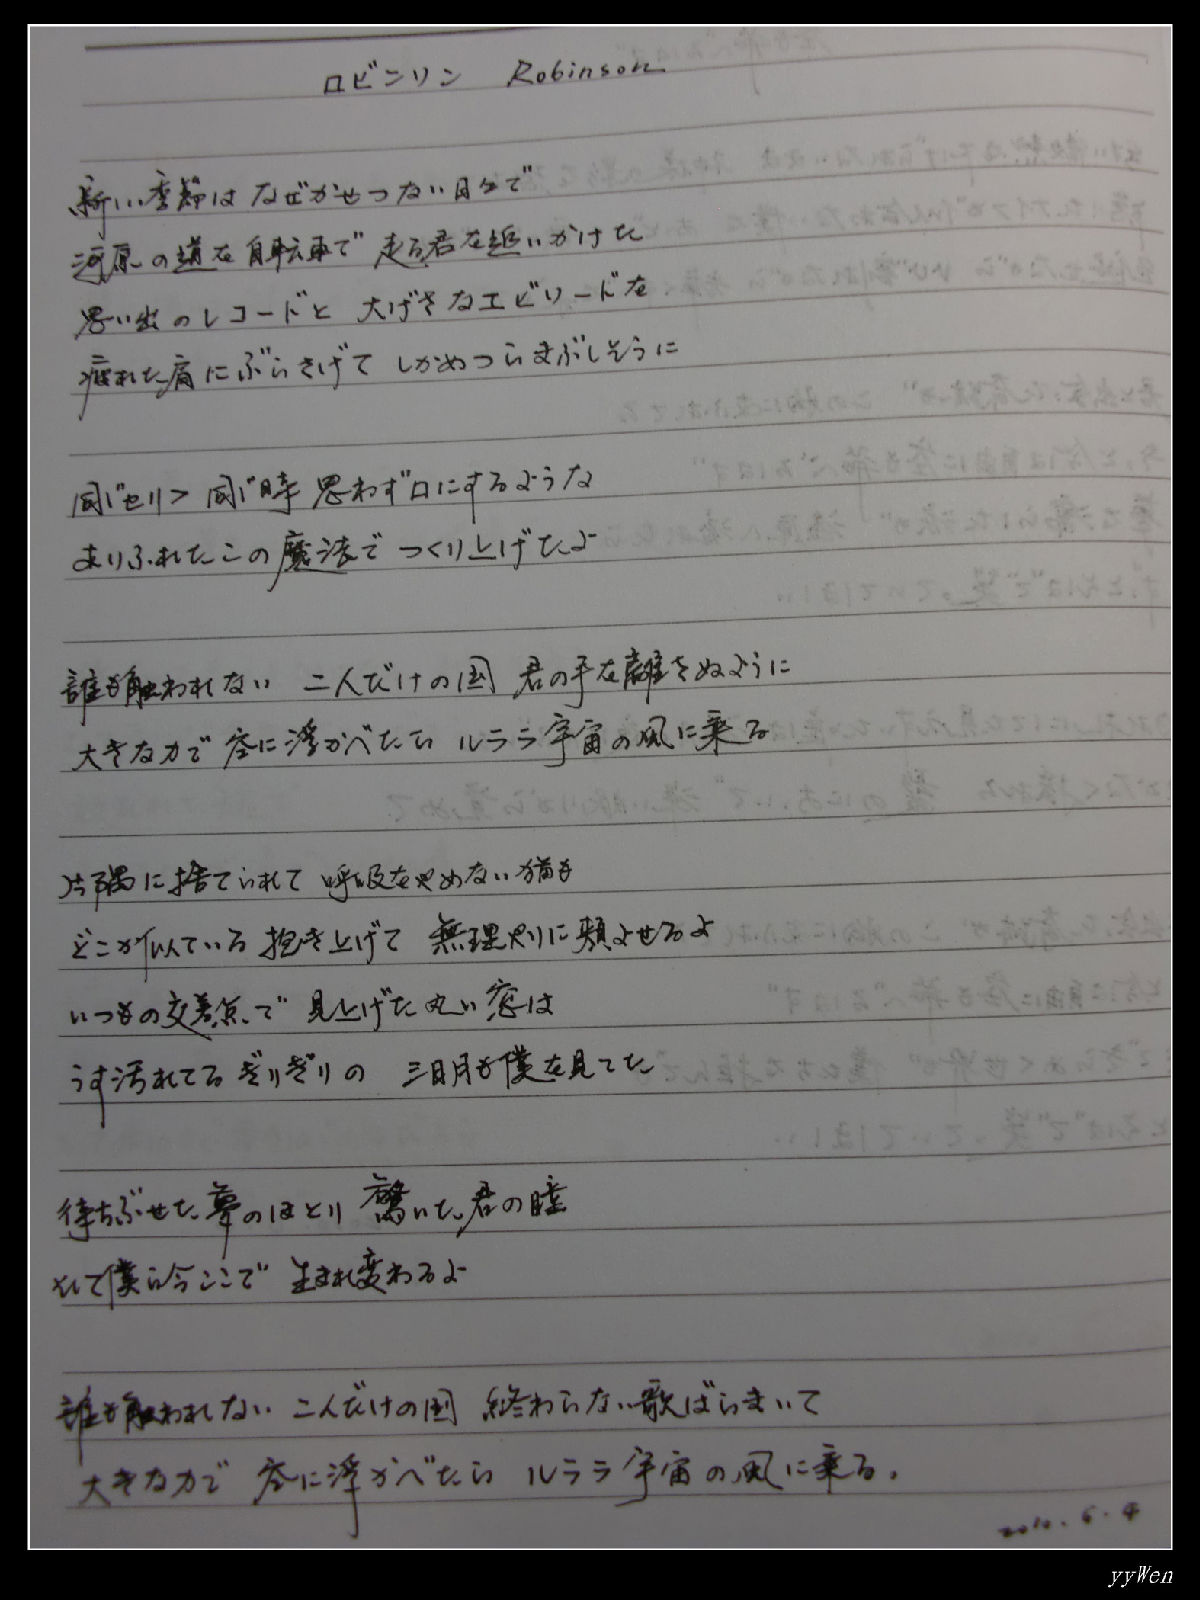 ロビンソン Robinson
新しい季節は なぜかせつない日々で
河原の道を自転車で 走る君を追いかけた
思い出のレコードと 大げさなエピソードを
疲れた肩にぶらさげて しかめつらまぶしそうに
同じセリフ 同じ時 思わず口にするような
ありふれたこの魔法で つくり上げたよ
誰も触われない 二人だけの国 君の手を離さぬように
大きな力で 空に浮かべたら ルララ 宇宙の風に乗る
片隅に捨てられて 呼吸をやめない猫も
どこか似ている 抱き上げて 無理やりに頬よせるよ
いつもの交差点で 見上げた丸い窓は
うす汚れてる ぎりぎりの 三日月も僕を見てた
待ちぶせた夢のほとり 驚いた君の瞳
そして僕ら今ここで 生まれ変わるよ
誰も触われない 二人だけの国 終わらない歌ばらまいて
大きな力で 空に浮かべたら ルララ 宇宙の風に乗る。
2010.6.4
yyWen